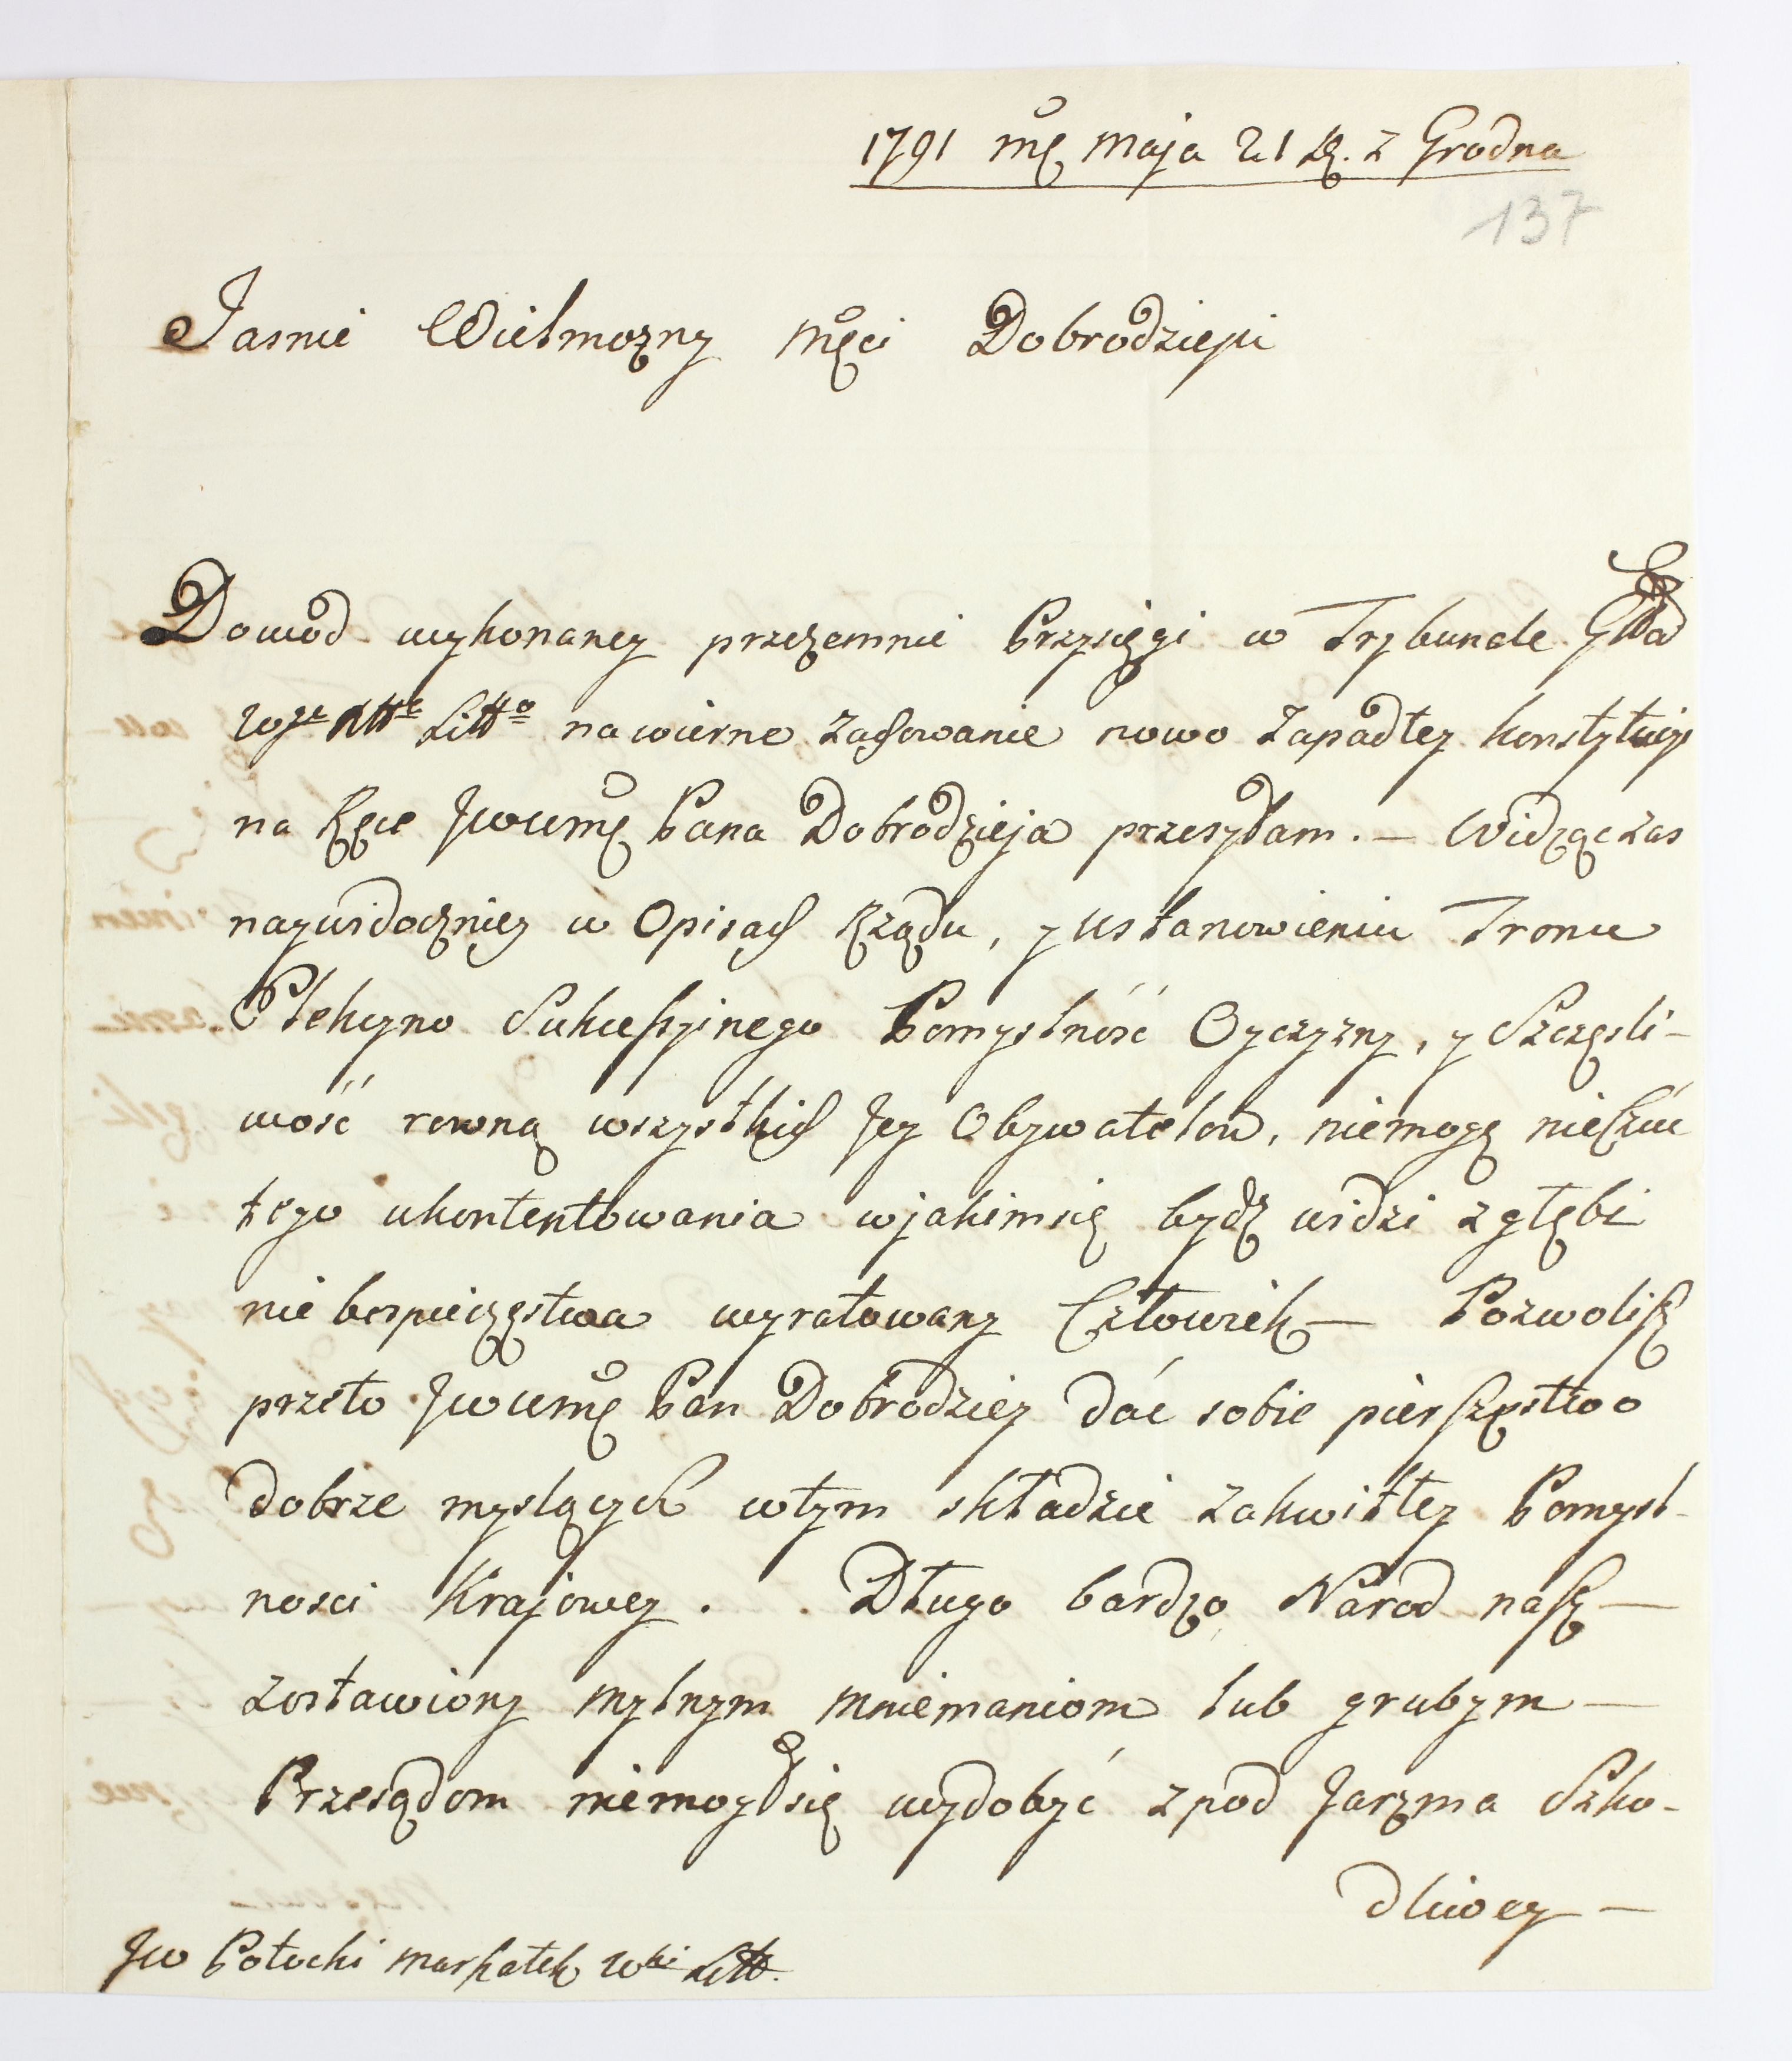 1791 mca maja 21 d. z Grodna
137
Jasnie Wielmozny Mści Dobrodzieju
Dowod wykonaney przezemnie Przysięgi w Trybunale Gł
Wgo Xtt Litto na wierne zachowanie nowo zapadłey konstytucyi
na Ręce Jwwmę Pana Dobrodzieja przesyłam. — Widząc zas
naywidoczniey w Opisach Rządu, y ustanowieniu Tronu
Elekcyno Sukcessyinego Pomyslność Oyczyzny, y Szczęsli-
wość rowną wszystkich Jey Obywatelow, niemogę nieczuć
tego ukontentowania wjakimsię bydz widzi zgłębi
niebespieczęstwa wyratowany Człowiek — Pozwolisz
przeto Jwwmę Pan Dobrodziey dać sobie pierszęstwo
dobrze myslących wtym składzie zakwitłey Pomysl-
nosci Krajowey. Długo bardzo Narod nasz —
zostawiony mylnym mniemaniom lub grubym —
Przesądom niemogł się wydobyć zpod Jarzma Szko-
dliwey —
Jw Potocki marszałek Wki Litt.